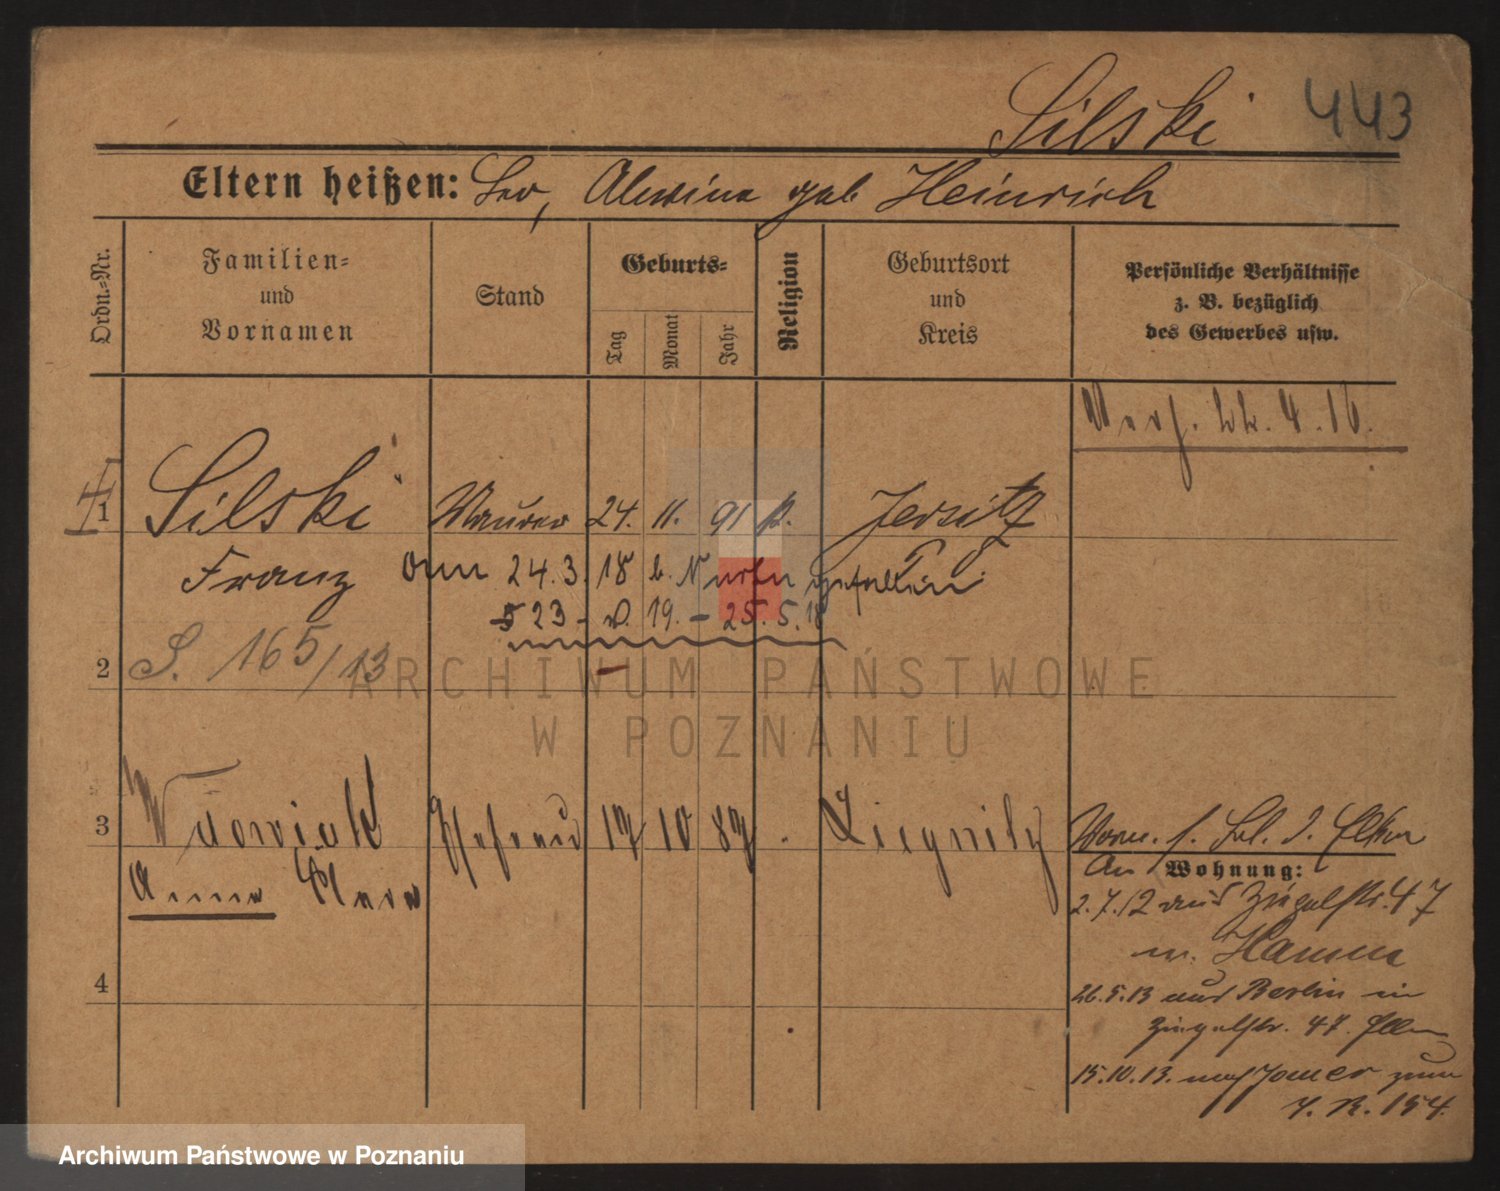 Silski 443
Eltern heißen: Leo, Alwina geb Heinrich
Ordn.-Nr.
Familien-
und
Vornamen
Stand
Geburts-
Tag
Monat
Jahr
Religion
Geburtsort
und
Kreis
Persönliche Verhältnisse
z. B. bezüglich
des Gewerbes usw.
Verh. 22. 4. 16.
1 Silski Maurer 24. 11. 91 k. Jersitz
Franz am 24. 3. 18 b. gefallen
23 - 19. - 25. 5. 18
2 S. 165/13
3 Ehefrau 17 10 87 Liegnitz
Anna Clara
Wohnung:
2. 7. 12 aus Ziegelstr. 47
26. 5. 13 aus Berlin in
Ziegelstr. 47.
15. 10. 13. nach zum
J. R. 154.
4
ARCHIWUM PAŃSTWOWE
W POZNANIU
Archiwum Państwowe w Poznaniu